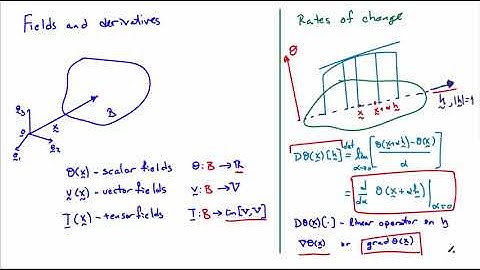 Fields and derivatives
B
x
e3
o
e2
e1
θ(x) - scalar fields θ: B → ℝ
v(x) - vector fields v: B → V
T(x) - tensor fields T: B → Lin[V,V]
Rates of change
θ
x x+αh h, |h|=1
Dθ(x)[h] def= lim α→0 [θ(x+αh)-θ(x) / α]
= d/dα θ(x+αh)|α=0
Dθ(x)[·] - linear operator on h
∇θ(x) or grad θ(x)